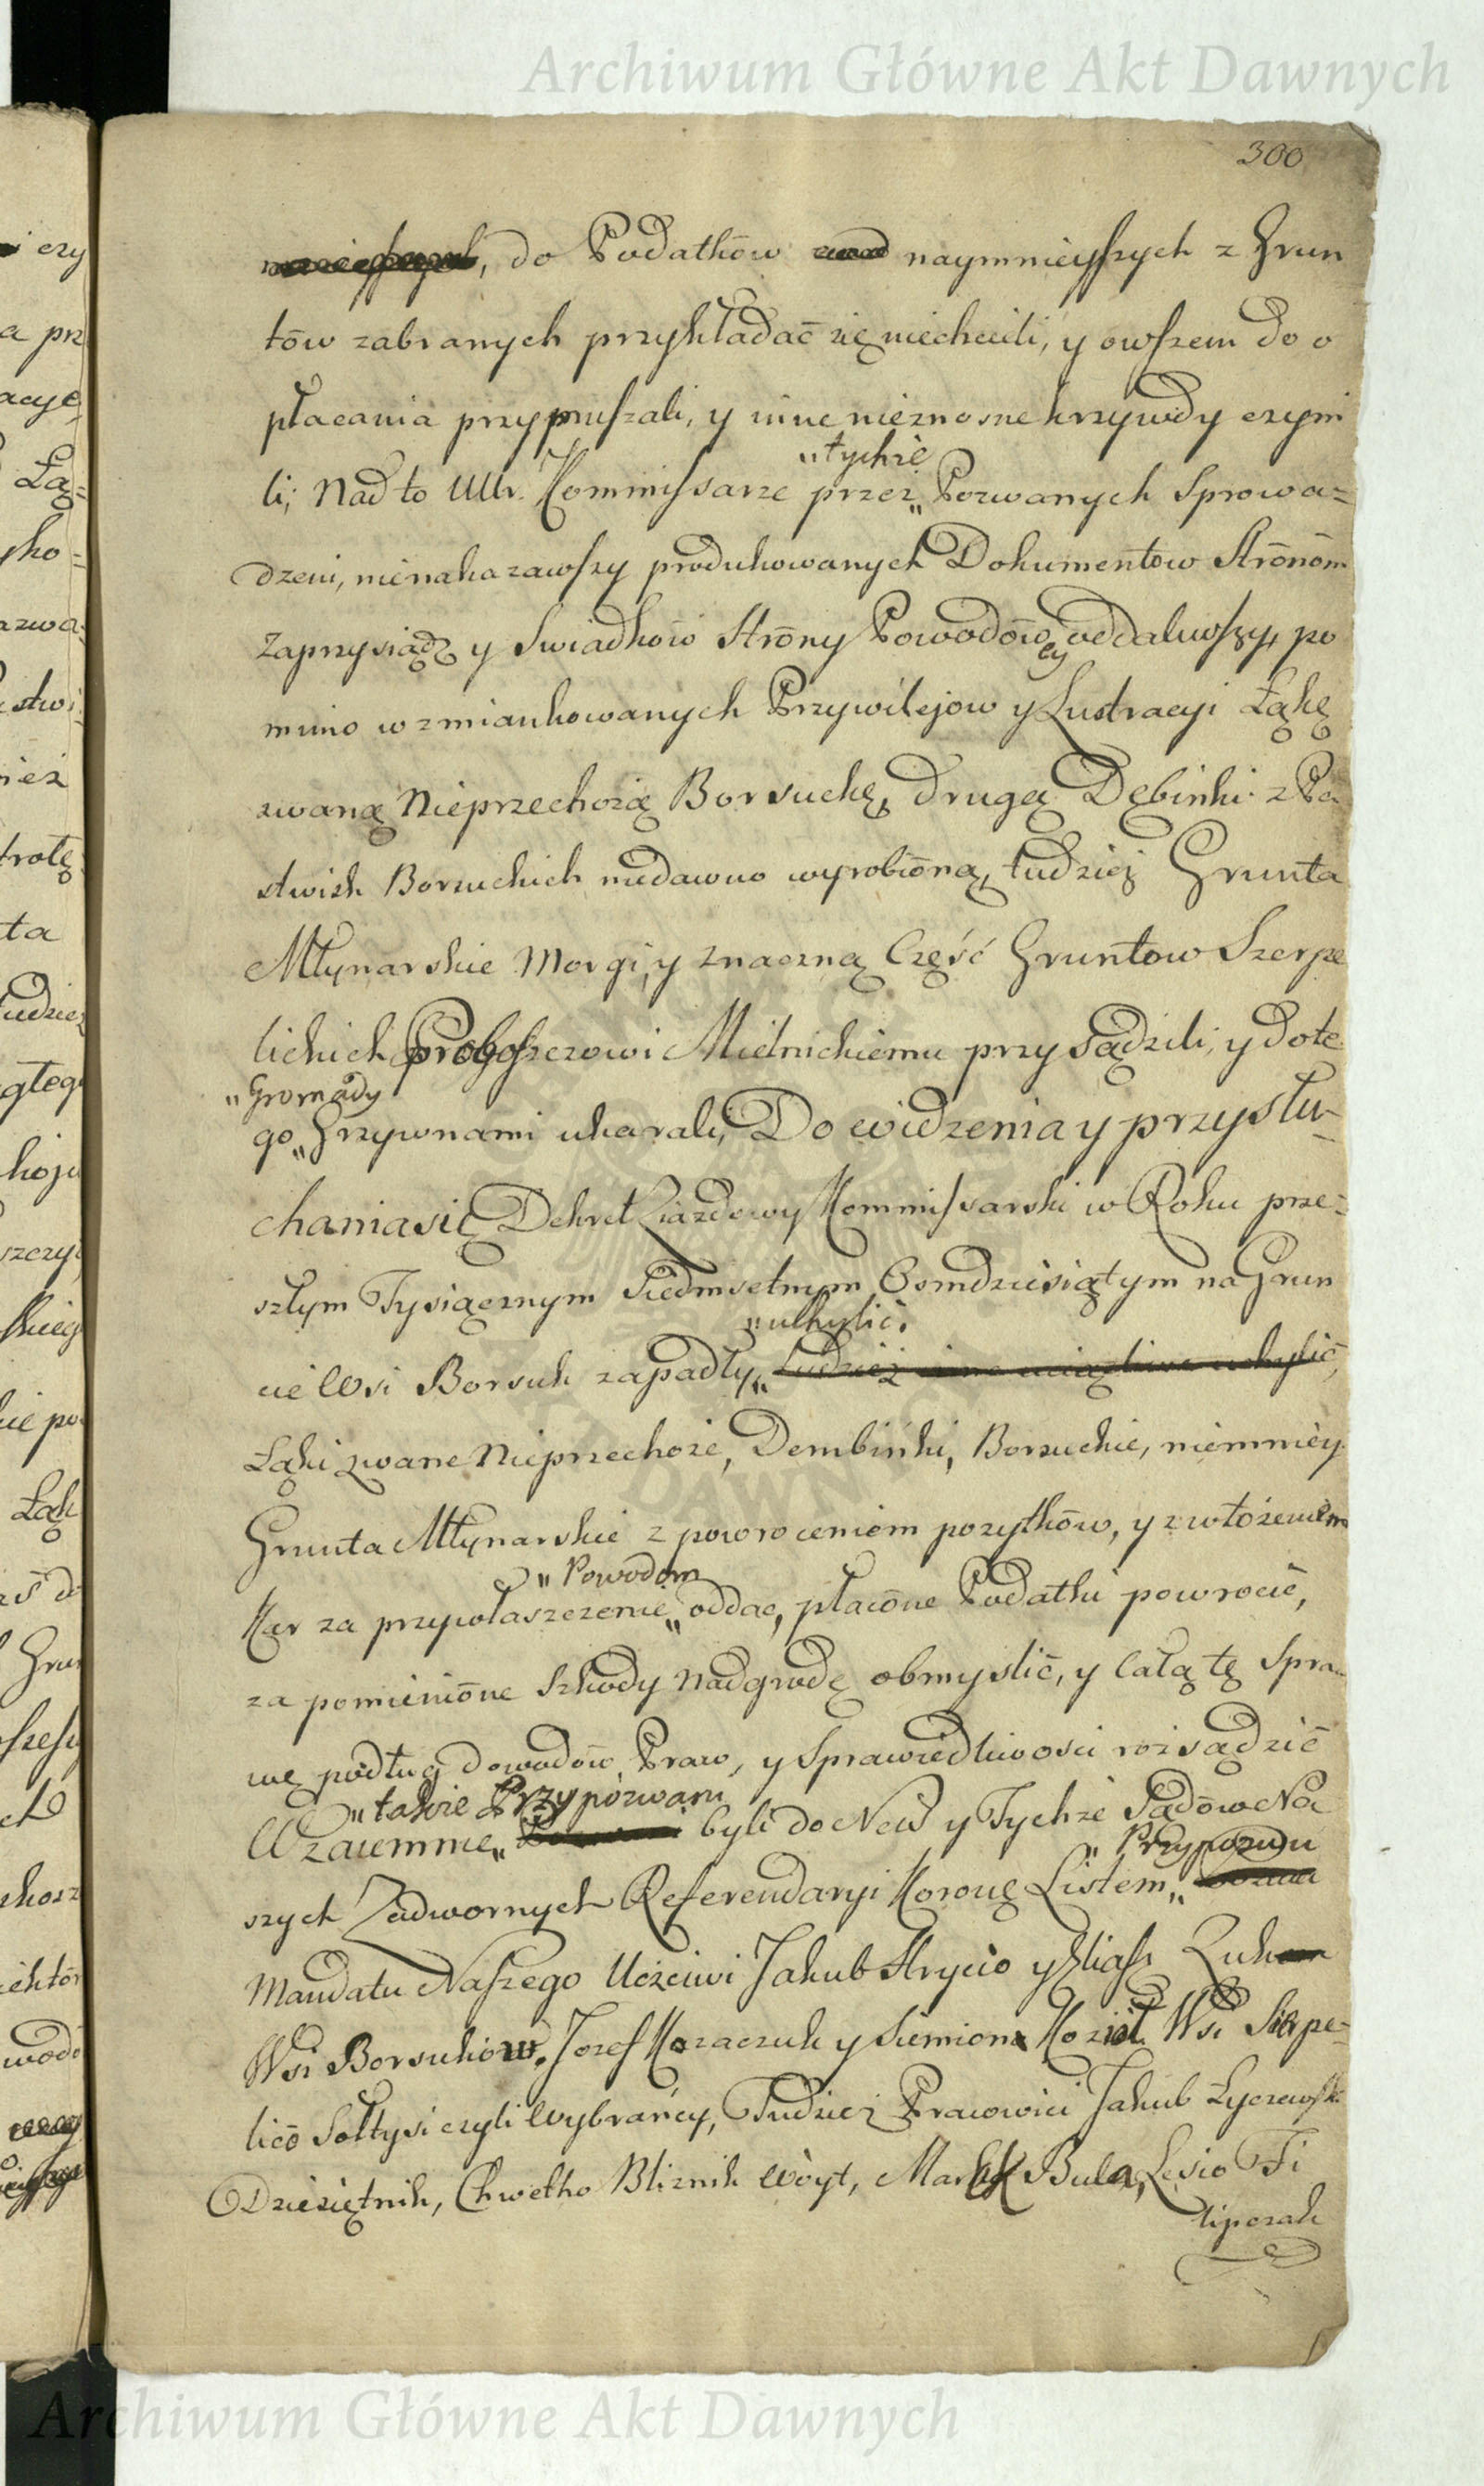 Archiwum Główne Akt Dawnych
300
do Podatków naymnieyszych z Grun
tów zabranych przykładać się niechcieli, y owszem do o
płacania przymuszali, y inne nieznosne krzywdy czyni
„tychże
li; Nad to Ur. Kommissarze przez„ Pozwanych Sprowa=
dzeni, nienakazawszy produkowanych Dokumentow Strōnōm
zaprzysiądz y Swiadków Strōny Powodōwey oddaliwszy, po
mimo wzmiankowanych Przywilejow y Lustracyi Łąkę
zwaną Nieprzechożą Borsuckę, drugą Dębinki z Pa
stwisk Borsuckich niedawno wyrobiōną, tudzież Grunta
Młynarskie Morgi, y znaczną Część Gruntow Szerpe
lickich Proboszczowi Mielnickiemu przysądzili, y dote
„Gromady
go„ Grzywnami ukarali, Do widzenia y przysłu-
chania się Dekret Ziazdowy Kommissarski w Roku prze=
szłym Tysiącznym Siedmsetnym Osmdziesiątym na Grun
„uchylić.
cie Wsi Borsuk zapadły„ tudzież inne uciążliwe uchylić,
Łąki zwane Nieprzechoże, Dembiński, Borsuckie, niemniéy
Grunta Młynarskie z powroceniem pozytkōw, y zwłożeniem
„Powodom
Kar za przywłaszczenie„ oddac, płacōne Podatki powrocić,
za pomieniōne Szkody Nadgrodę obmyslić, y całą tę Spra-
wę podług dowodōw, Praw, y Sprawiedliwosci rozsądzić
„także Przypozwani
Wzaiemnie„ byli do New y Tychże Sądōw Na
„Przypozwu
szych Zadwornych Referendaryi Koronę Listem„
Mandatu Naszego Uczciwi Jakub Hrycio y Eliasz Zuk
Wsi Borsukow. Jozef Kozaczuk y Siemion Kozioł Wsi Sierpe=
lic Sołtysi czyli Wybrańcy, Tudzież Pracowici Jakub Łyczewsk
Dziesiętnik, Chwetko Bliznik Wóyt, Mark Bula, Lesio Fi
lipczak
Archiwum Główne Akt Dawnych